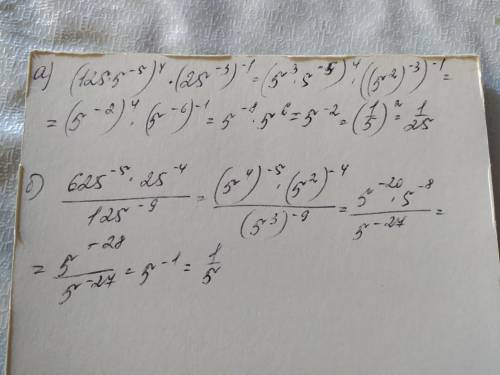 а) (125·5⁻⁵)⁴·(25⁻³)⁻¹=(5³·5⁻⁵)⁴·((5²)⁻³)⁻¹=
=(5⁻²)⁴·(5⁻⁶)⁻¹=5⁻⁸·5⁶=5⁻²=(1/5)²=1/25
б) (625⁻⁵·25⁻⁴)/(125⁻⁹)=((5⁴)⁻⁵·(5²)⁻⁴)/((5³)⁻⁹)=(5⁻²⁰·5⁻⁸)/(5⁻²⁷)=
=5⁻²⁸/5⁻²⁷=5⁻¹=1/5